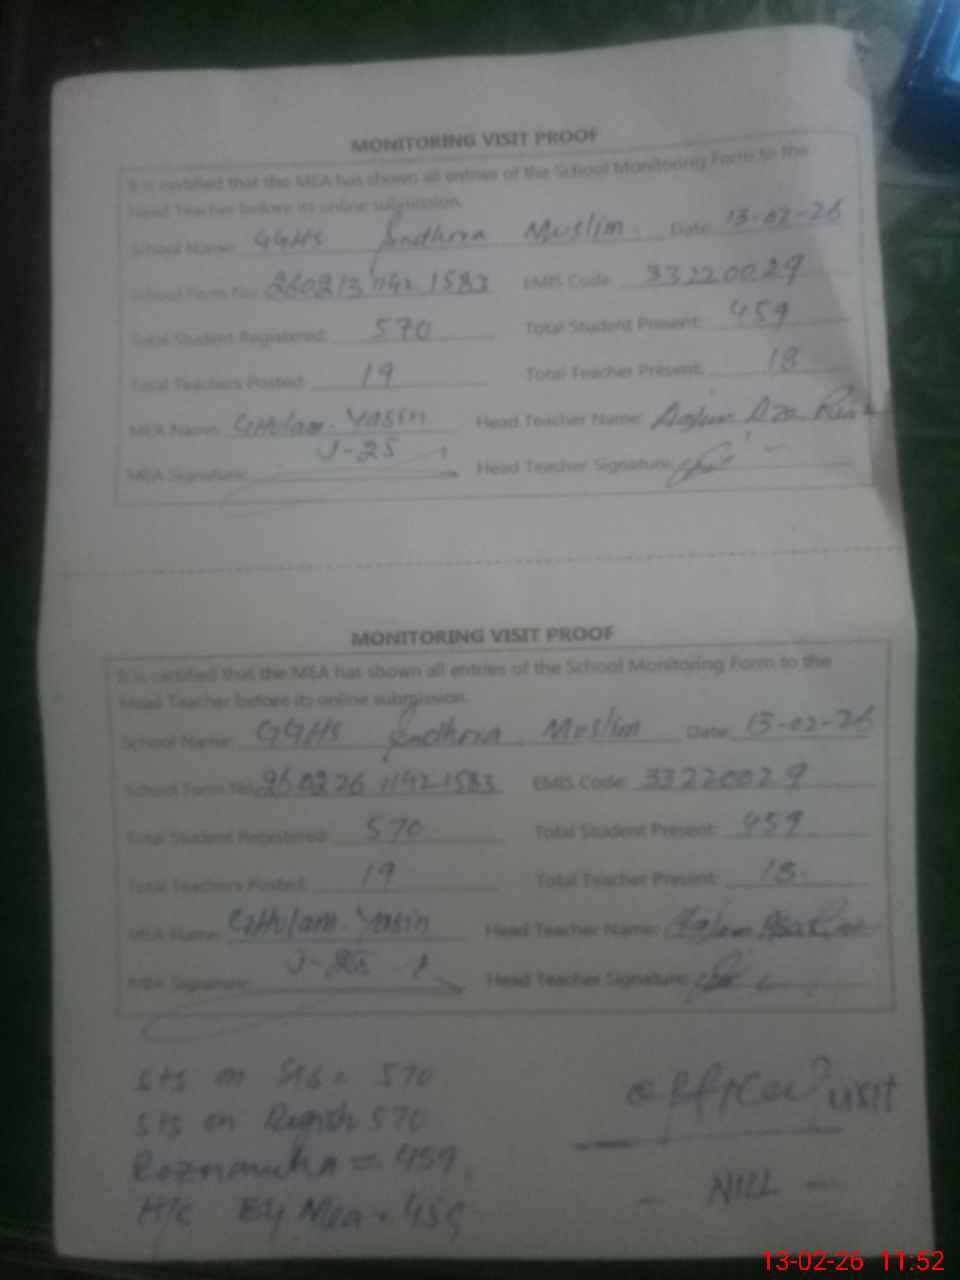 MONITORING VISIT PROOF
It is certified that the MEA has shown all entries of the School Monitoring Form to the
Head Teacher before its online submission.
School Name: GGHS Jendhria Muslim Date: 13-02-26
School Form No: 260213 1142 1583 EMIS Code: 33220029
Total Student Registered: 570 Total Student Present: 459
Total Teachers Posted: 19 Total Teacher Present: 18
MEA Name: GHulam Yasin Head Teacher Name:
J-25
MEA Signature: Head Teacher Signature:
MONITORING VISIT PROOF
It is certified that the MEA has shown all entries of the School Monitoring Form to the
Head Teacher before its online submission.
School Name: GGHS Jendhria Muslim Date: 13-02-26
School Form No: 260226 1142 1583 EMIS Code: 33220029
Total Student Registered: 570 Total Student Present: 459
Total Teachers Posted: 19 Total Teacher Present: 18
MEA Name: GHulam Yasin Head Teacher Name:
J-25
MEA Signature: Head Teacher Signature:
sts on SIS = 570
sts on 570
Roznamcha = 459
H/C By Mea = 459
officer visit
- NILL -
13-02-26 11:52